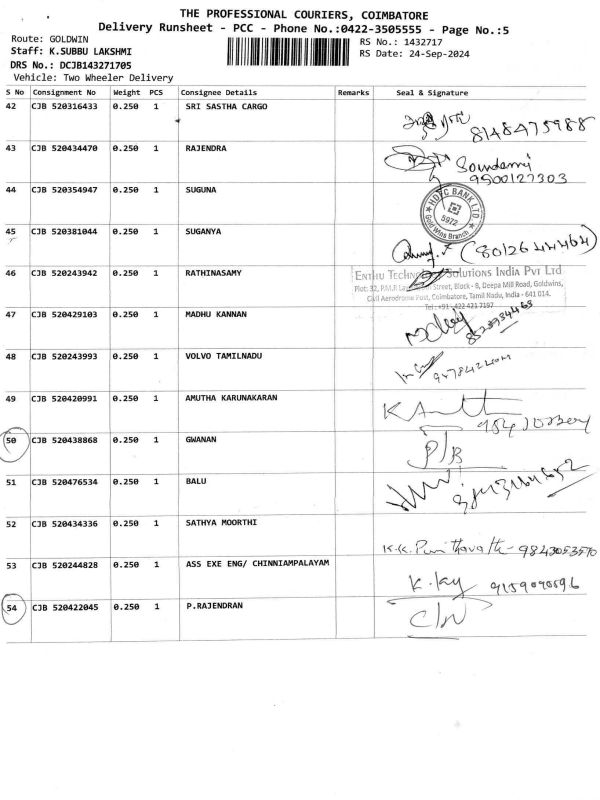 THE PROFESSIONAL COURIERS, COIMBATORE
Delivery Runsheet - PCC - Phone No.:0422-3505555 - Page No.:5
Route: GOLDWIN
RS No.: 1432717
Staff: K.SUBBU LAKSHMI
RS Date: 24-Sep-2024
DRS No.: DCJB143271705
Vehicle: Two Wheeler Delivery
S No Consignment No Weight PCS Consignee Details Remarks Seal & Signature
42 CJB 520316433 0.250 1 SRI SASTHA CARGO
8148475988
43 CJB 520434470 0.250 1 RAJENDRA
9500127303
44 CJB 520354947 0.250 1 SUGUNA
HDFC BANK LTD.
5972
Gold Wins Branch
45 CJB 520381044 0.250 1 SUGANYA
46 CJB 520243942 0.250 1 RATHINASAMY
ENTHU Solutions India Pvt Ltd
Street, Block - B, Deepa Mill Road, Goldwins,
Civil Aerodrome Post, Coimbatore, Tamil Nadu, India - 641 014.
Tel: +91 422 421 7197
47 CJB 520429103 0.250 1 MADHU KANNAN
48 CJB 520243993 0.250 1 VOLVO TAMILNADU
49 CJB 520420991 0.250 1 AMUTHA KARUNAKARAN
50 CJB 520438868 0.250 1 GWANAN
P/B
51 CJB 520476534 0.250 1 BALU
52 CJB 520434336 0.250 1 SATHYA MOORTHI
9843053570
53 CJB 520244828 0.250 1 ASS EXE ENG/ CHINNIAMPALAYAM
54 CJB 520422045 0.250 1 P.RAJENDRAN